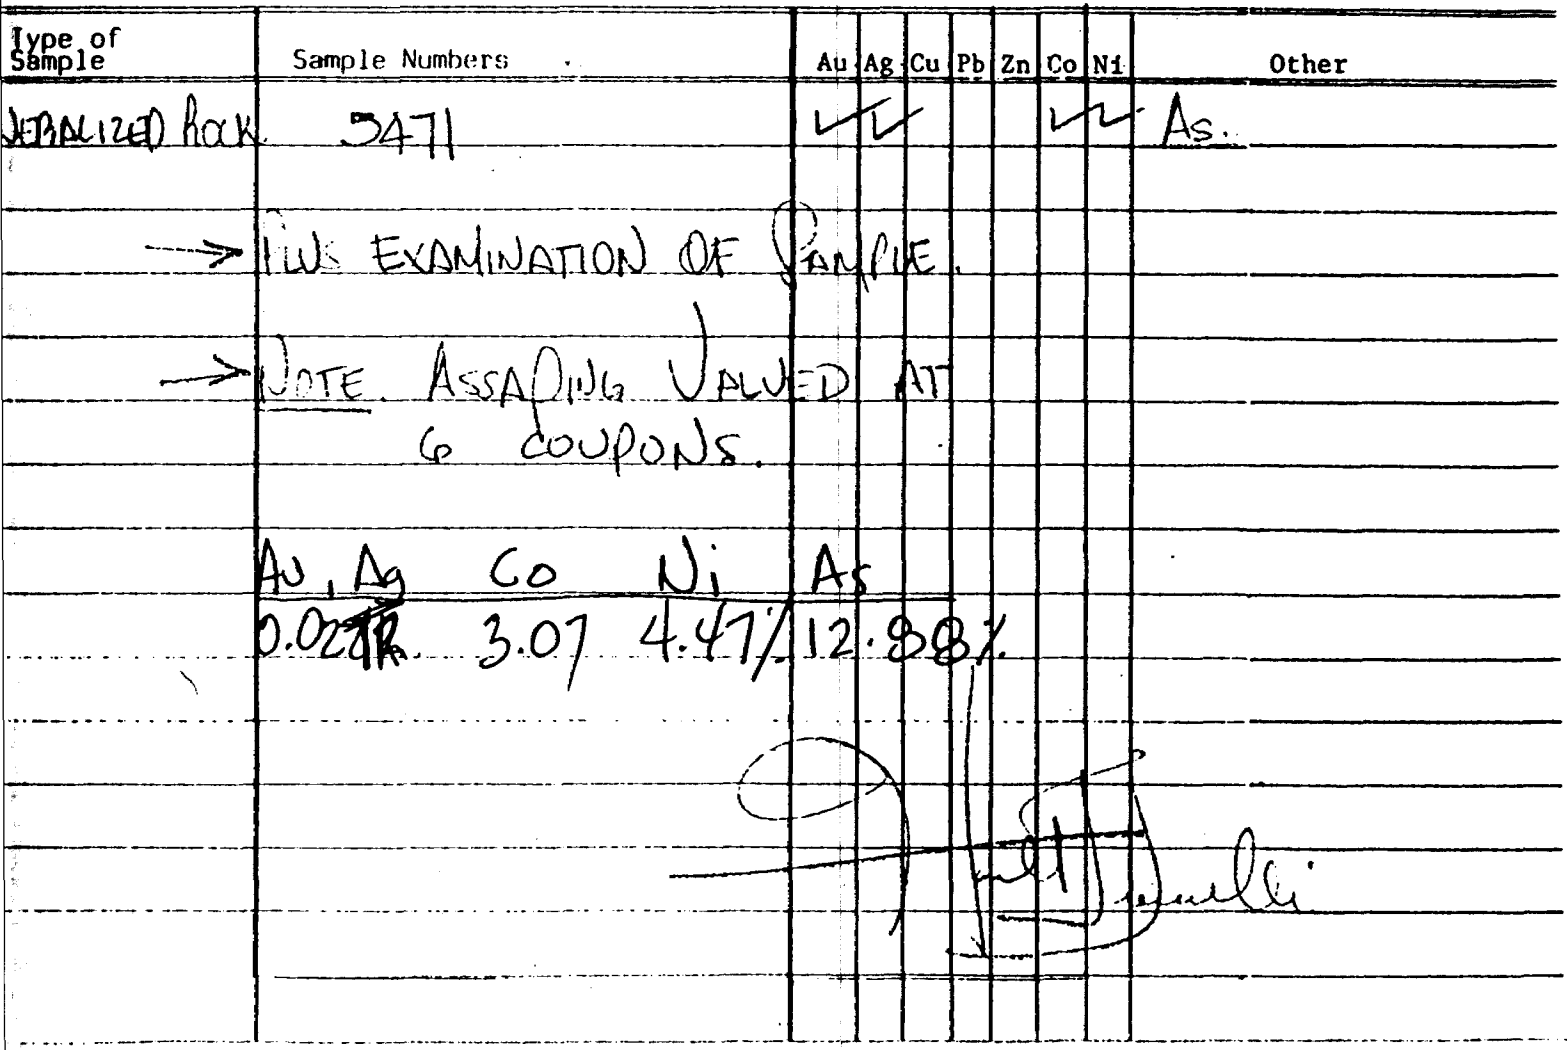 Type of
Sample Sample Numbers Au Ag Cu Pb Zn Co Ni Other
NERALIZED ROCK 5471 ✓ ✓ ✓ ✓ As.
→ PLUS EXAMINATION OF SAMPLE.
→ NOTE. ASSAYING VALUED AT
6 COUPONS.
Au, Ag Co Ni As
TR. 3.07 4.47% 12.88%